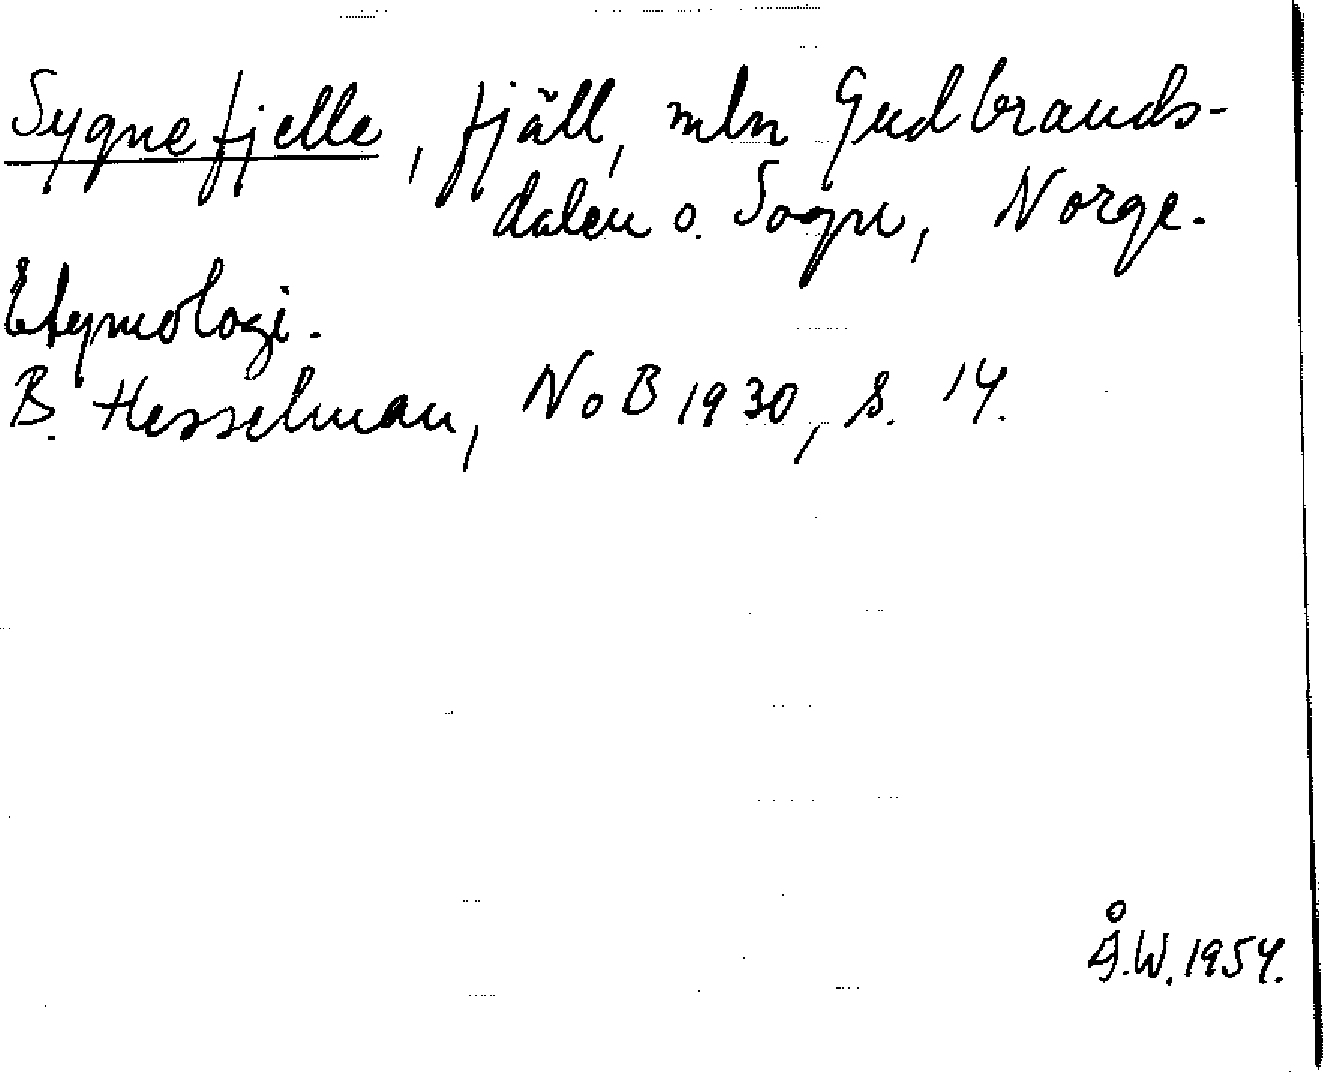 Sygnefjelle, fjäll, mln Gudbrands-
dalen o. Sogn, Norge.
Etymologi.
B. Hesselman, NoB 1930, s. 14.
Å.W. 1954.